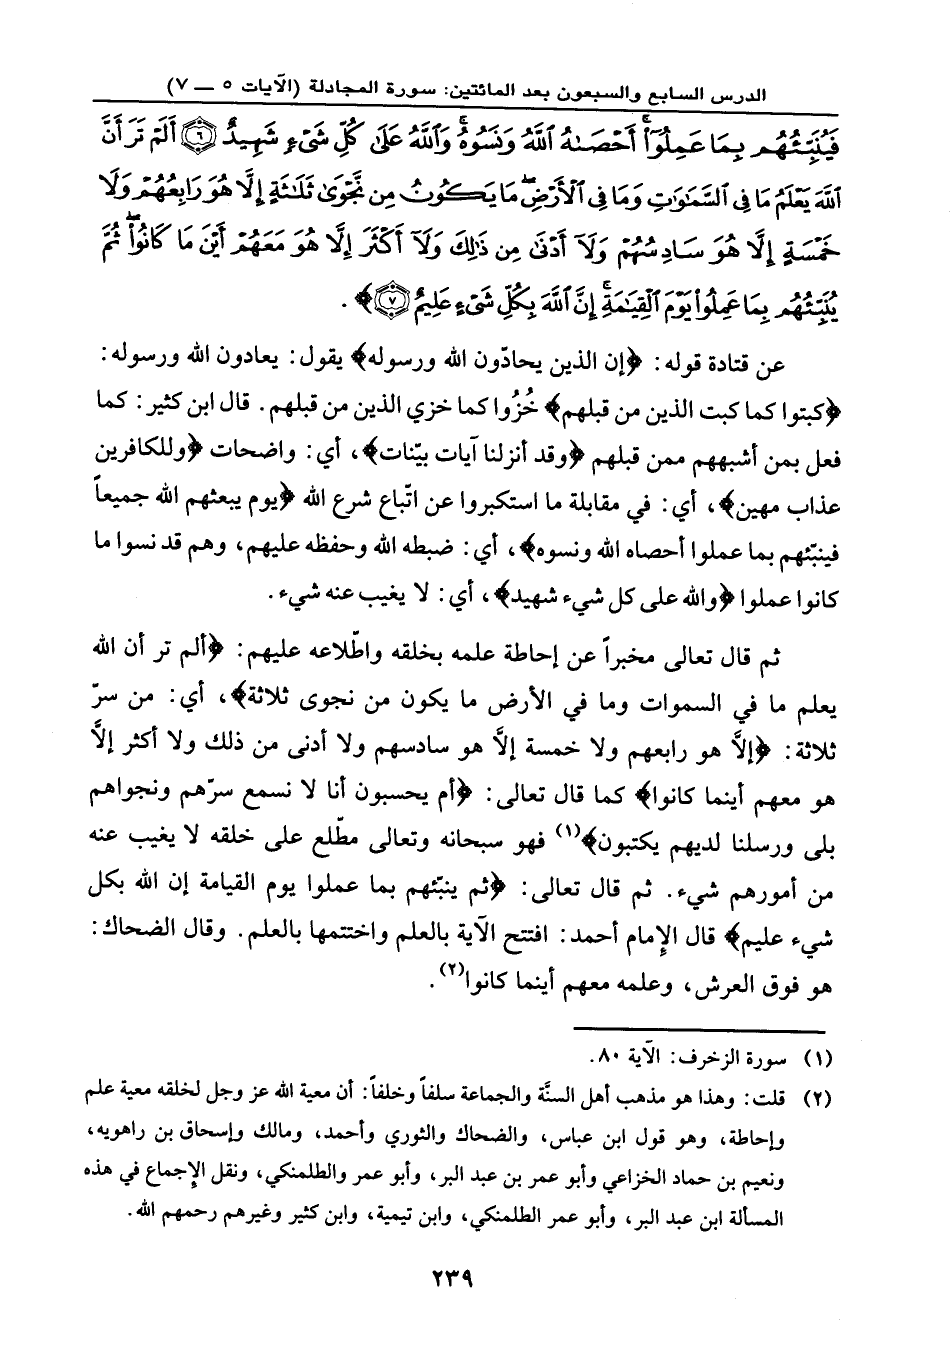 الدرس السابع والسبعون بعد المائتين: سورة المجادلة (الآيات ٥ ــ ٧)
فَيُنَبِّئُهُم بِمَا عَمِلُوٓاْۚ أَحْصَىٰهُ ٱللَّهُ وَنَسُوهُۚ وَٱللَّهُ عَلَىٰ كُلِّ شَىْءٍ شَهِيدٌ ۝٦ أَلَمْ تَرَ أَنَّ
ٱللَّهَ يَعْلَمُ مَا فِى ٱلسَّمَٰوَٰتِ وَمَا فِى ٱلْأَرْضِۖ مَا يَكُونُ مِن نَّجْوَىٰ ثَلَٰثَةٍ إِلَّا هُوَ رَابِعُهُمْ وَلَا
خَمْسَةٍ إِلَّا هُوَ سَادِسُهُمْ وَلَآ أَدْنَىٰ مِن ذَٰلِكَ وَلَآ أَكْثَرَ إِلَّا هُوَ مَعَهُمْ أَيْنَ مَا كَانُواْۖ ثُمَّ
يُنَبِّئُهُم بِمَا عَمِلُواْ يَوْمَ ٱلْقِيَٰمَةِۚ إِنَّ ٱللَّهَ بِكُلِّ شَىْءٍ عَلِيمٌ ۝٧﴾.
عن قتادة قوله: ﴿إن الذين يحادّون الله ورسوله﴾ يقول: يعادون الله ورسوله:
﴿كبتوا كما كبت الذين من قبلهم﴾ خُزُوا كما خزي الذين من قبلهم. قال ابن كثير: كما
فعل بمن أشبههم ممن قبلهم ﴿وقد أنزلنا آيات بيّنات﴾، أي: واضحات ﴿وللكافرين
عذاب مهين﴾، أي: في مقابلة ما استكبروا عن اتّباع شرع الله ﴿يوم يبعثهم الله جميعاً
فينبّئهم بما عملوا أحصاه الله ونسوه﴾، أي: ضبطه الله وحفظه عليهم، وهم قد نسوا ما
كانوا عملوا ﴿والله على كل شيء شهيد﴾، أي: لا يغيب عنه شيء.
ثم قال تعالى مخبراً عن إحاطة علمه بخلقه واطّلاعه عليهم: ﴿ألم تر أن الله
يعلم ما في السموات وما في الأرض ما يكون من نجوى ثلاثة﴾، أي: من سرّ
ثلاثة: ﴿إلاَّ هو رابعهم ولا خمسة إلاَّ هو سادسهم ولا أدنى من ذلك ولا أكثر إلاَّ
هو معهم أينما كانوا﴾ كما قال تعالى: ﴿أم يحسبون أنا لا نسمع سرّهم ونجواهم
بلى ورسلنا لديهم يكتبون﴾(١) فهو سبحانه وتعالى مطّلع على خلقه لا يغيب عنه
من أمورهم شيء. ثم قال تعالى: ﴿ثم ينبّئهم بما عملوا يوم القيامة إن الله بكل
شيء عليم﴾ قال الإمام أحمد: افتتح الآية بالعلم واختتمها بالعلم. وقال الضحاك:
هو فوق العرش، وعلمه معهم أينما كانوا(٢).
(١) سورة الزخرف: الآية ٨٠.
(٢) قلت: وهذا هو مذهب أهل السنَّة والجماعة سلفاً وخلفاً: أن معية الله عز وجل لخلقه معية علم
وإحاطة، وهو قول ابن عباس، والضحاك والثوري وأحمد، ومالك وإسحاق بن راهويه،
ونعيم بن حماد الخزاعي وأبو عمر بن عبد البر، وأبو عمر والطلمنكي، ونقل الإجماع في هذه
المسألة ابن عبد البر، وأبو عمر الطلمنكي، وابن تيمية، وابن كثير وغيرهم رحمهم الله.
٢٣٩